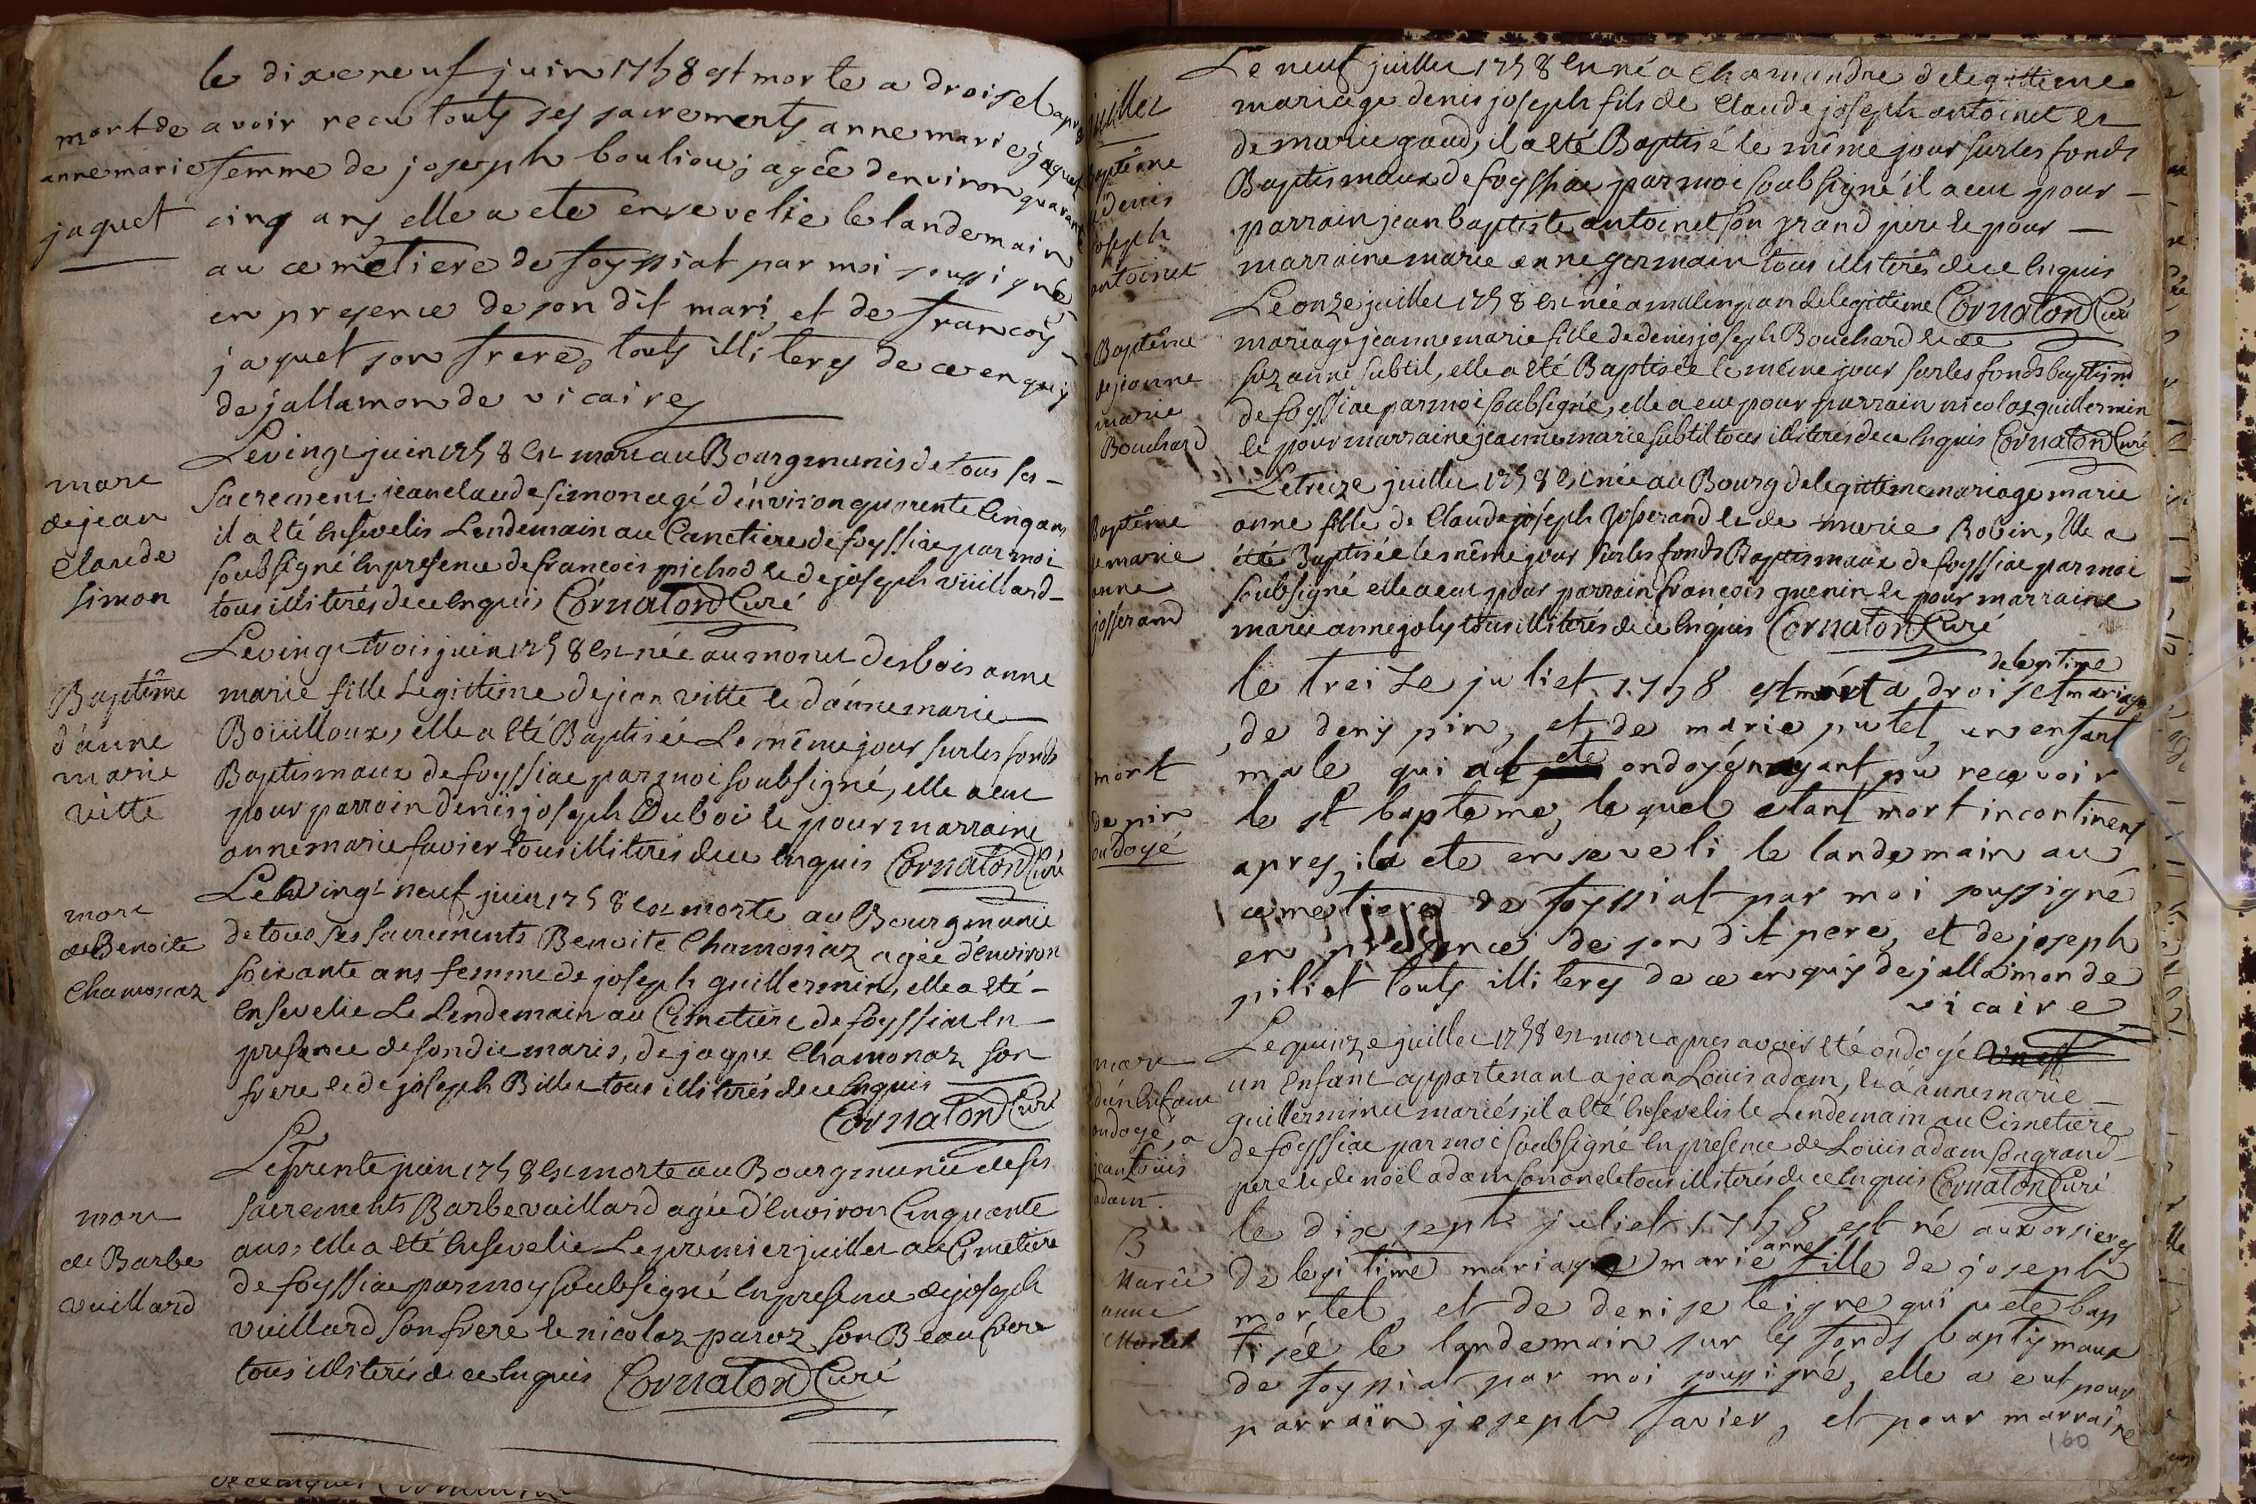 le dixeneuf juin 1758 est morte a droiset apres
mort de
anne marie
jaquet
avoir recu touts ses sacrements anne marie jaquet
femme de joseph bouliou; agée denviron quarante
cinq ans elle a ete ensevelie le landemain
au cemetiere de foyssiat par moi soussigné
en presence de son dit mari, et de francois
jaquet son frere, touts illiteres de ce enquis
dejallamonde vicaire
mort
de jean
claude
simon
Le vingt juin 1758 est mort au Bourg munis de tous ses
sacrement jean claude simon agé d'environ quarente cinq ans
il a été ensevelis Lendemain au Cimetiere de foyssiat par moi
soubsigné en presence de francois pichod et de joseph vüillard
tous illiterés de ce enquis Cornaton Curé
Baptême
d'anne
marie
vitte
Le vingt trois juin 1758 est née au monet desbois anne
marie fille Legittime de jean vitte et d'anne marie
Boüilloux, elle a été Baptisée Le même jour sur les fonds
Baptismaux de foyssiat par moi soubsigné, elle a eut
pour parrain denis joseph Duboi et pour marraine
anne marie favier tous illiterés de ce enquis Cornaton Curé
mort
de Benoite
Chamonaz
Le vingt neuf juin 1758 est morte au Bourg munie
de tous ses sacrements Benoite Chamonaz agée d'environ
soixante ans femme de joseph guillermin, elle a été
ensevelie Le Lendemain au Cimetiere de foyssiat en
presence de son dit maris, de jaque Chamonaz son
frere et de joseph Billet tous illiterés de ce enquis
Cornaton Curé
mort
de Barbe
vuillard
Le trente juin 1758 est morte au Bourg munie de ses
sacrements Barbe vuillard agée d'environ Cinquante
ans, elle a été ensevelie Le premier juillet au Cimetiere
de foyssiat par moy soubsigné en presence de joseph
vuillard son frere et nicolaz paroz son Beau frere
tous illiterés de ce enquis Cornaton Curé
juillet
Baptême
de denis
joseph
antoinet
Le neuf juillet 1758 est né a Chamandre de legittime
mariage denis joseph fils de Claude joseph antoinet et
de marie gaud, il a été Baptisé le même jour sur les fonds
Baptismaux de foyssiat par moi soubsigné il a eut pour
parrain jean baptiste antoinet son grand pere et pour
marraine marie anne germain tous illiterés de ce enquis
Cornaton Curé
Baptême
de jeanne
marie
Bouchard
Le onze juillet 1758 est née a malingian de legittime
mariage jeanne marie fille de denis joseph Bouchard et de
suzanne subtil, elle a été Baptisée le même jour sur les fonds
de foyssiat par moi soubsigné, elle a eut pour parrain nicolas guillermin
et pour marraine jeanne marie subtil tous illiterés de ce enquis Cornaton Curé
Baptême
de marie
anne
jósserand
Le treize juillet 1758 est née au Bourg de legittime mariage marie
anne fille de Claude joseph josserand et de marie Robin, elle a
été Baptisée le même jour sur les fonds Baptismaux de foyssiat par moi
soubsigné elle a eut pour parrain francois guenin et pour marraine
marie anne joly tous illiterés de ce enquis Cornaton Curé
mort
de pin
ondoyé
le treize juliet 1758 est mort a droiset de legitime mariage
de denis pin, et de marie putet, un enfant
male qui a ete ondoyé nayant pu recevoir
le st bapteme, le quel etant mort incontinent
apres, il a ete enseveli le landemain au
cemetiere de foyssiat par moi soussigné
en presence de son dit pere, et de joseph
piliat touts illiteres de ce enquis dejallamonde
vicaire
mort
d'un enfant
ondoyé, a
jean Loüis
adam.
Le quinze juillet 1758 est mort apres avoir été ondoyé
un enfant appartenant a jean Louis adam, et a anne marie
guillerminet mariés, il a été ensevelis le Lendemain au Cimetiere
de foyssiat par moi soubsigné en presence de Louis adam son grand
pere et de noël adam son oncle tous illiterés de ce enquis Cornaton Curé
B
Marie
anne
Mortel
le dix sept juliet 1758 est né aux orsieres
de legitime mariage marie anne fille de joseph
mortel, et de denise leigre qui a ete bap
tisée le landemain sur les fonds baptismaux
de foyssiat par moi soussigné, elle a eut pour
parrain joseph favier, et pour marraine
160